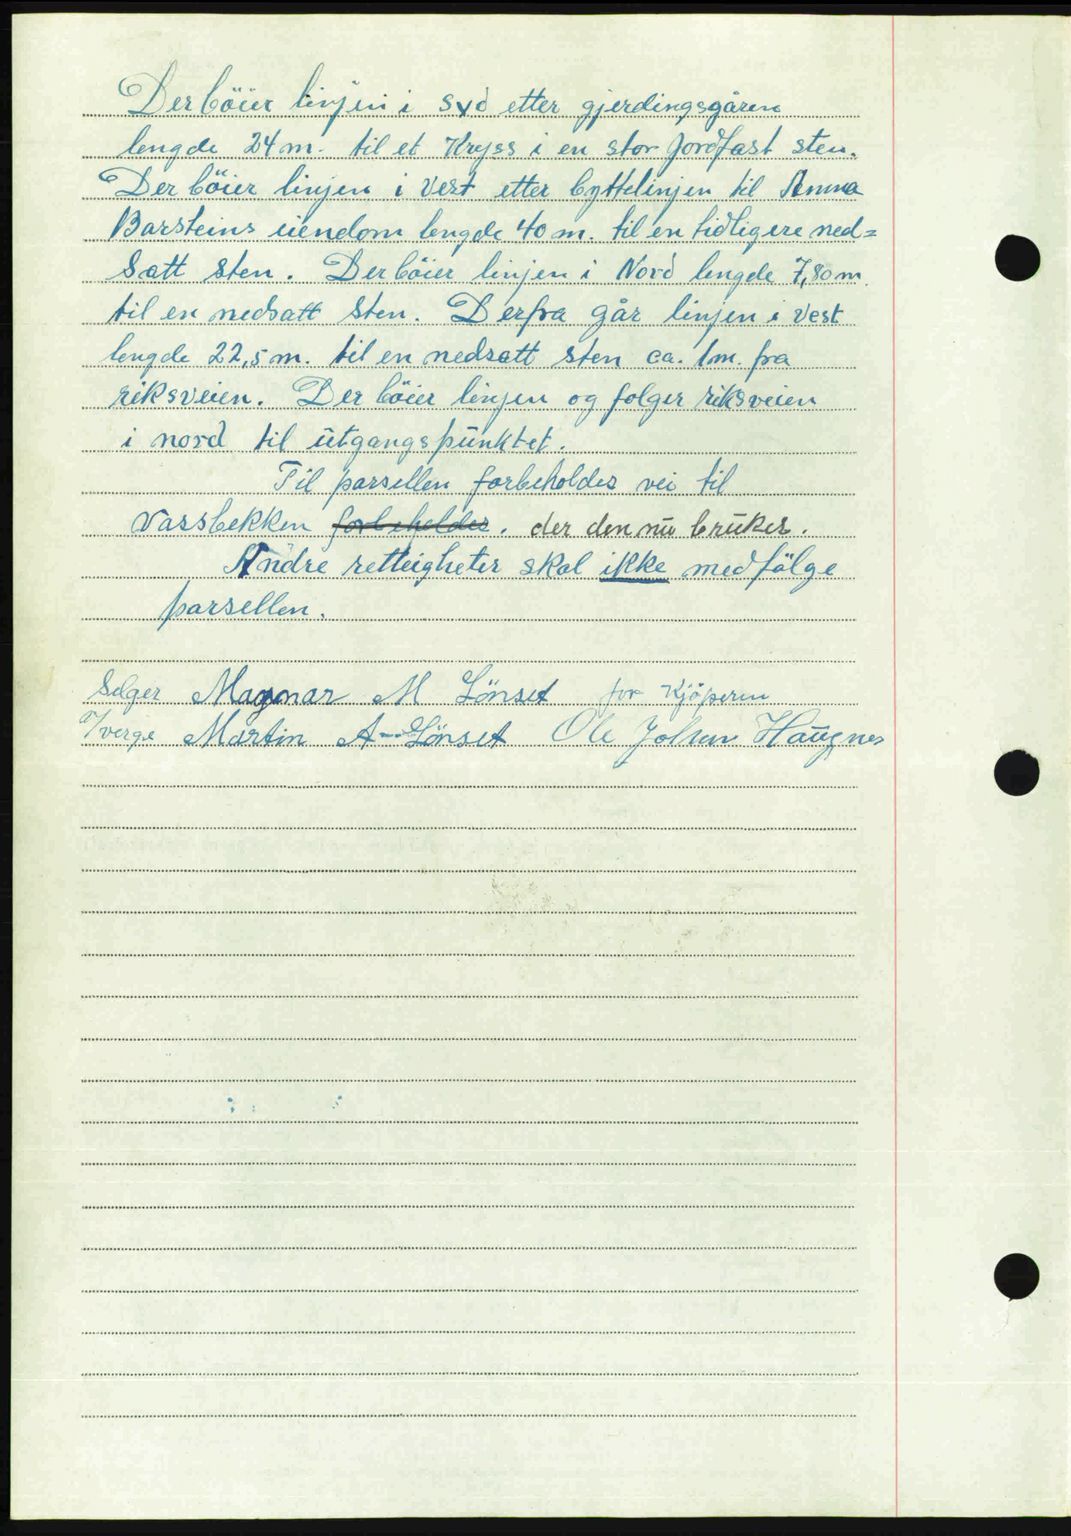 Der böier linjen i syd etter gjerdingsgåren
lengde 24 m. til et Kryss i en stor Jordfast sten.
Der böier linjen i Vest etter byttelinjen til Anna
Barsteins eiendom lengde 40 m. til en tidligere ned=
satt sten. Der böier linjen i Nord lengde 7,80 m.
til en nedsatt sten. Derfra går linjen i Vest
lengde 22,5 m. til en nedsatt sten ca. 1 m. fra
riksveien. Der böier linjen og folger riksveien
i nord til utgangspunktet.
Til parsellen forbeholdes vei til
Vassbekken forbeholdes. der den nu bruker.
Andre rettigheter skal ikke medfölge
parsellen.
Selger Magnar M Lönset for Kjöperen
v/verge Martin A Lönset Ole Johan Haugnes